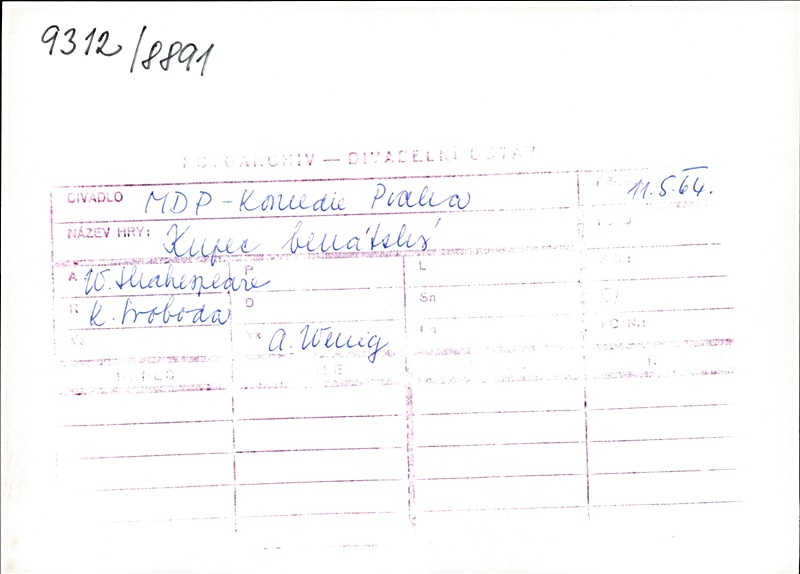 9312/8891
FOTOARCHIV — DIVADELNÍ ÚSTAV
DIVADLO MDP - Komedie Praha 11.5.64.
NÁZEV HRY: Kupec benátský
A W. Shakespeare P L
R K. Svoboda O Sn
Vk A. Wenig